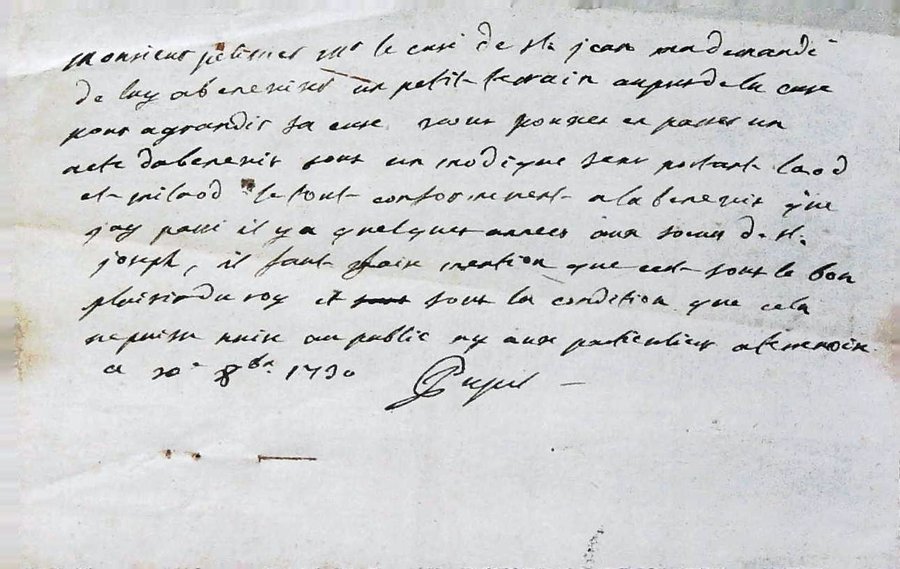 monsieur pelissier mr le curé de st. jean ma demandé
de luy abeneviser un petit terrain aupres de la cure
pour agrandir sa cure vous pouvés en passer un
acte dabenevis sous un modique sens portant laod
et milaod le tout conformement a labenevis que
jay passé il y a quelques années aux soeurs de st.
joseph, il faut faire mention que cest sous le bon
plaisir du roy et sous la condition que cela
ne puisse nuire au public ny aux particuliers
a 8bre. 1730